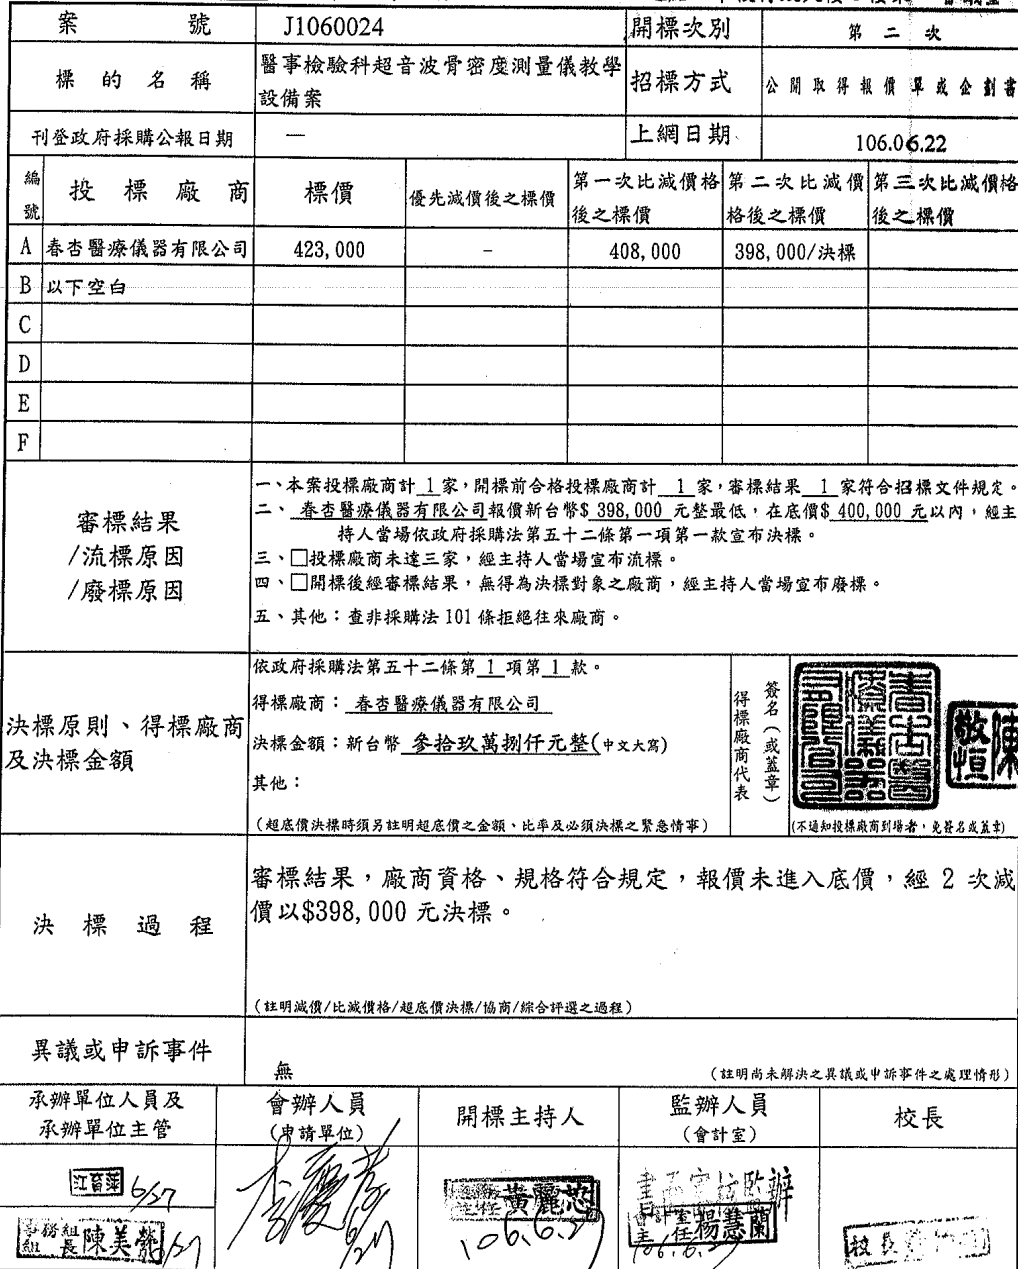 案號 J1060024 開標次別 第二次
標的名稱 醫事檢驗科超音波骨密度測量儀教學
設備案
招標方式 公開取得報價單或企劃書
刊登政府採購公報日期 — 上網日期 106.06.22
編號 投標廠商 標價 優先減價後之標價 第一次比減價格
後之標價 第二次比減價
格後之標價 第三次比減價格
後之標價
A 春杏醫療儀器有限公司 423,000 - 408,000 398,000/決標
B 以下空白
C
D
E
F
審標結果
/流標原因
/廢標原因
一、本案投標廠商計 1 家,開標前合格投標廠商計 1 家,審標結果 1 家符合招標文件規定。
二、春杏醫療儀器有限公司報價新台幣$ 398,000 元整最低,在底價$ 400,000 元以內,經主
持人當場依政府採購法第五十二條第一項第一款宣布決標。
三、□投標廠商未達三家,經主持人當場宣布流標。
四、□開標後經審標結果,無得為決標對象之廠商,經主持人當場宣布廢標。
五、其他:查非採購法 101 條拒絕往來廠商。
決標原則、得標廠商
及決標金額
依政府採購法第五十二條第 1 項第 1 款。
得標廠商: 春杏醫療儀器有限公司
決標金額:新台幣 參拾玖萬捌仟元整(中文大寫)
其他:
(超底價決標時須另註明超底價之金額、比率及必須決標之緊急情事)
得標廠商代表
簽名(或蓋章)
春杏醫療儀器有限公司
陳敬恒
(不通知投標廠商到場者,免簽名或蓋章)
決標過程
審標結果,廠商資格、規格符合規定,報價未進入底價,經 2 次減
價以$398,000 元決標。
(註明減價/比減價格/超底價決標/協商/綜合評選之過程)
異議或申訴事件 無 (註明尚未解決之異議或申訴事件之處理情形)
承辦單位人員及
承辦單位主管
會辦人員
(申請單位)
開標主持人
監辦人員
(會計室)
校長
江育萍 6/27
事務組
組長 陳美
主任 黃麗
106.6.27
書面審核監辦
會計室
主任 楊慧蘭
106.6.27
校長